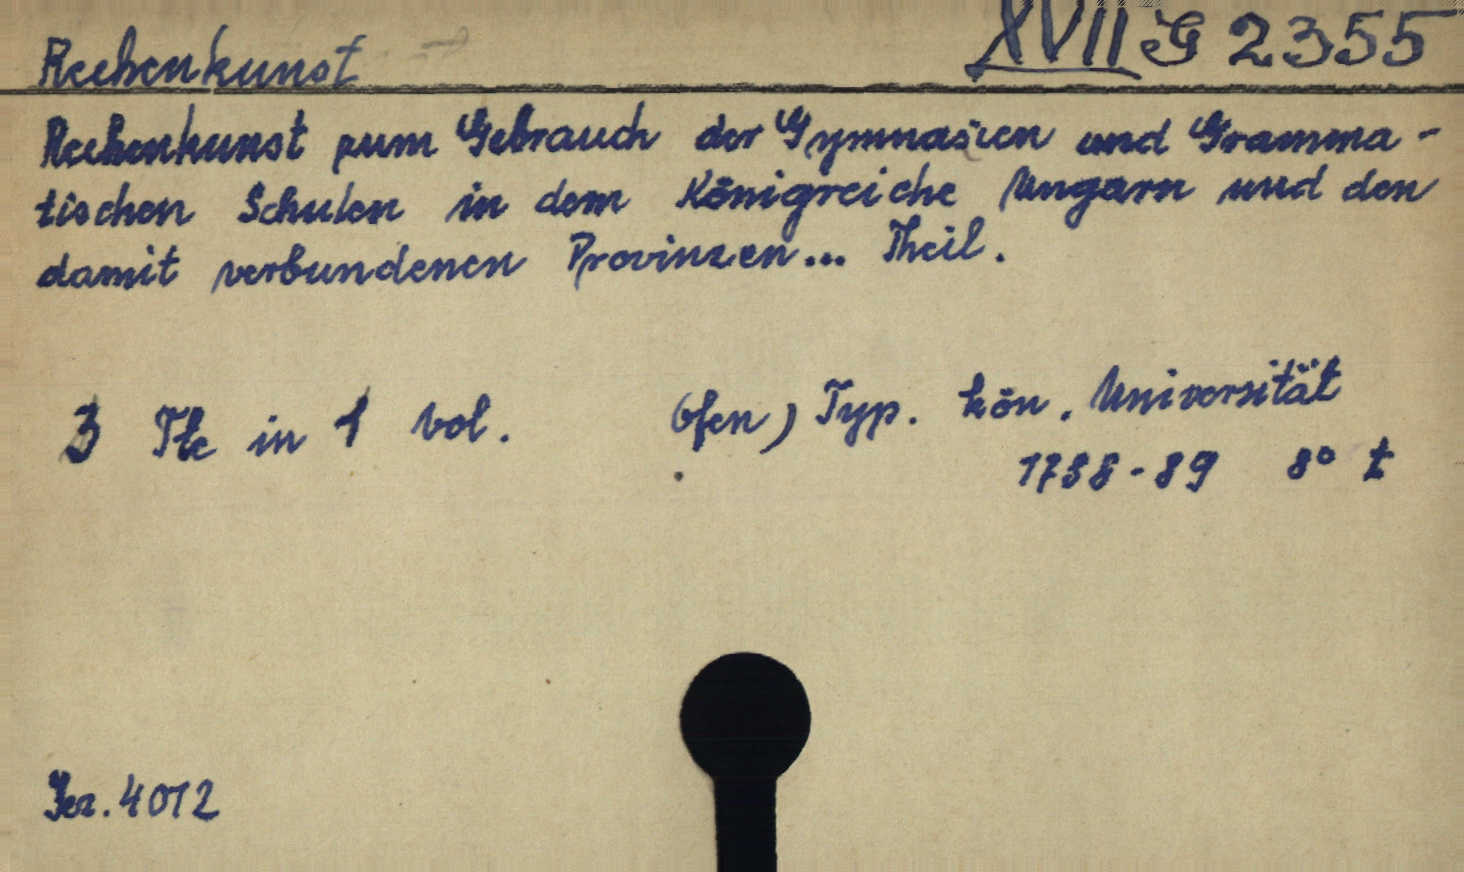 Rechenkunst
XVII G 2355
Rechenkunst zum Gebrauch der Gymnasien und Gramma-
tischen Schulen in dem Königreiche Ungarn und den
damit verbundenen Provinzen... Theil.
3 Tle in 1 vol. Ofen) Typ. kön. Universität
1788-89 8° t
Jez. 4012